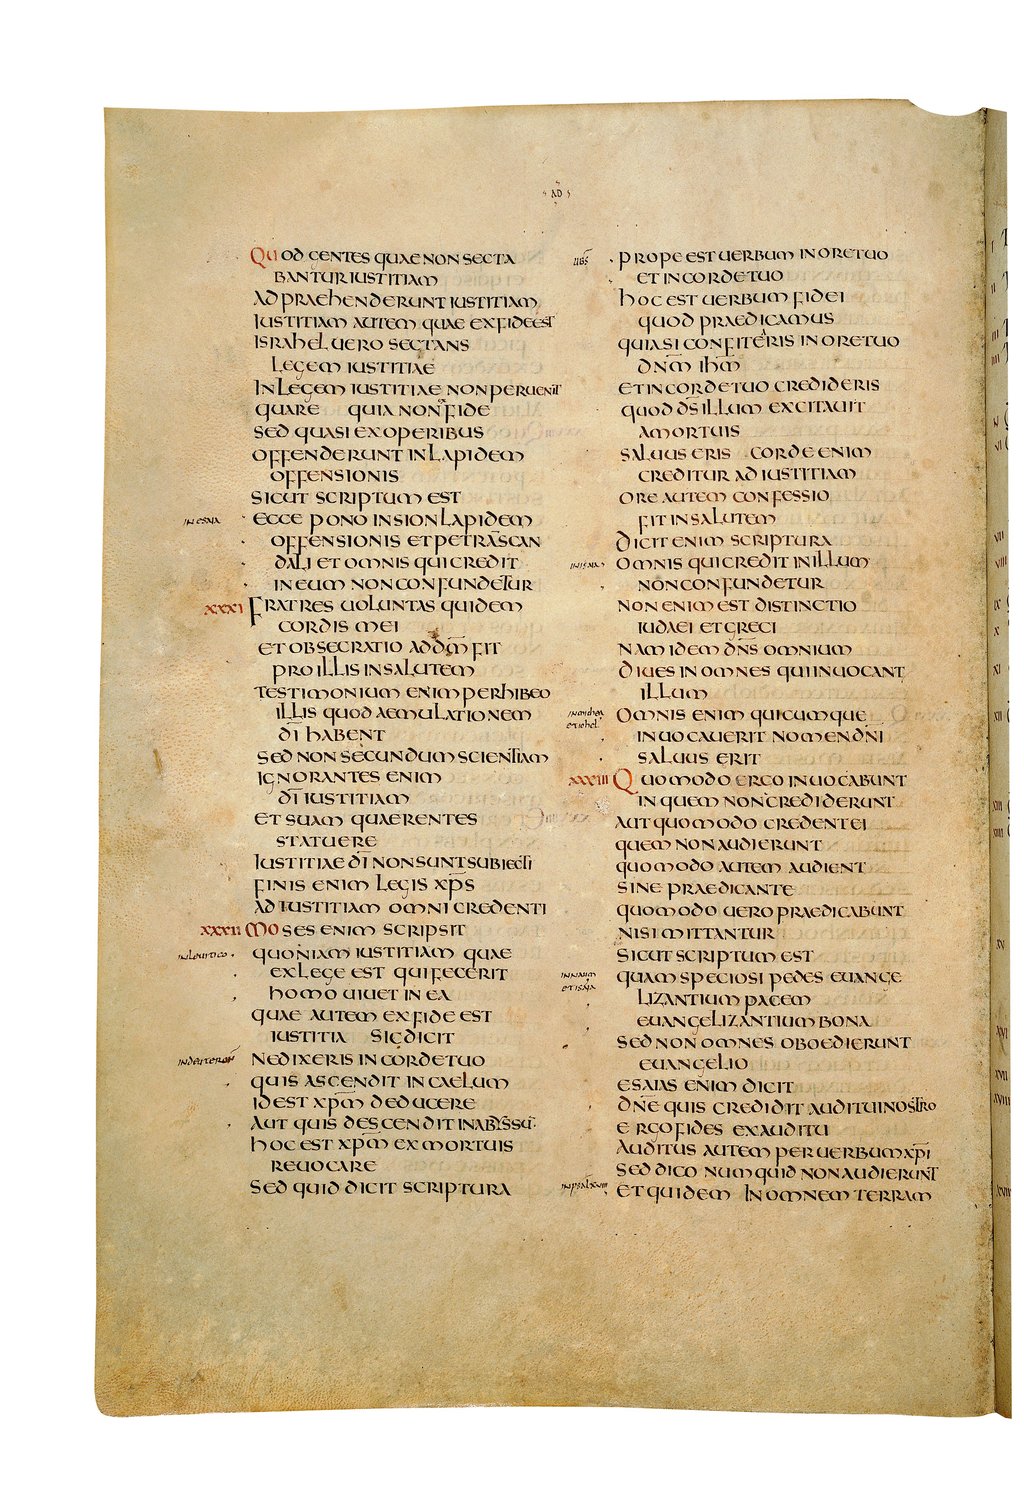 AD
QUOD GENTES QUAE NON SECTA
BANTUR IUSTITIAM
ADPRAEHENDERUNT IUSTITIAM
IUSTITIAM AUTEM QUAE EX FIDE EST
ISRAHEL UERO SECTANS
LEGEM IUSTITIAE
IN LEGEM IUSTITIAE NON PERUENIT
QUARE QUIA NON EX FIDE
SED QUASI EX OPERIBUS
OFFENDERUNT IN LAPIDEM
OFFENSIONIS
SICUT SCRIPTUM EST
IN ESAIA
ECCE PONO IN SION LAPIDEM
OFFENSIONIS ET PETRA SCAN
DALI ET OMNIS QUI CREDIT
IN EUM NON CONFUNDETUR
XXXI FRATRES UOLUNTAS QUIDEM
CORDIS MEI
ET OBSECRATIO AD DM̄ FIT
PRO ILLIS IN SALUTEM
TESTIMONIUM ENIM PERHIBEO
ILLIS QUOD AEMULATIONEM
DĪ HABENT
SED NON SECUNDUM SCIENTIAM
IGNORANTES ENIM
DĪ IUSTITIAM
ET SUAM QUAERENTES
STATUERE
IUSTITIAE DĪ NON SUNT SUBIECTI
FINIS ENIM LEGIS XP̄S
AD IUSTITIAM OMNI CREDENTI
XXXII MOSES ENIM SCRIPSIT
IN LEUITICO
QUONIAM IUSTITIAM QUAE
EX LEGE EST QUI FECERIT
HOMO UIUET IN EA
QUAE AUTEM EX FIDE EST
IUSTITIA SIC DICIT
NE DIXERIS IN CORDE TUO
QUIS ASCENDIT IN CAELUM
ID EST XP̄M DEDUCERE
AUT QUIS DESCENDIT IN ABYSSŪ
HOC EST XP̄M EX MORTUIS
REUOCARE
SED QUID DICIT SCRIPTURA
PROPE EST UERBUM IN ORE TUO
ET IN CORDE TUO
HOC EST UERBUM FIDEI
QUOD PRAEDICAMUS
QUIA SI CONFITERIS IN ORE TUO
DNM̄ IHM̄
ET IN CORDE TUO CREDIDERIS
QUOD DS̄ ILLUM EXCITAUIT
A MORTUIS
SALUUS ERIS CORDE ENIM
CREDITUR AD IUSTITIAM
ORE AUTEM CONFESSIO
FIT IN SALUTEM
DICIT ENIM SCRIPTURA
OMNIS QUI CREDIT IN ILLUM
NON CONFUNDETUR
NON ENIM EST DISTINCTIO
IUDAEI ET GRECI
NAM IDEM DN̄S OMNIUM
DIUES IN OMNES QUI INUOCANT
ILLUM
OMNIS ENIM QUICUMQUE
INUOCAUERIT NOMEN DN̄I
SALUUS ERIT
XXXIII QUOMODO ERGO INUOCABUNT
IN QUEM NON CREDIDERUNT
AUT QUOMODO CREDENT EI
QUEM NON AUDIERUNT
QUOMODO AUTEM AUDIENT
SINE PRAEDICANTE
QUOMODO UERO PRAEDICABUNT
NISI MITTANTUR
SICUT SCRIPTUM EST
IN NAUM
ET ISAIA
QUAM SPECIOSI PEDES EUANGE
LIZANTIUM PACEM
EUANGELIZANTIUM BONA
SED NON OMNES OBOEDIERUNT
EUANGELIO
ESAIAS ENIM DICIT
DN̄E QUIS CREDIDIT AUDITUI NOSTRO
ERGO FIDES EX AUDITU
AUDITUS AUTEM PER UERBUM XP̄I
SED DICO NUMQUID NON AUDIERUNT
ET QUIDEM IN OMNEM TERRAM